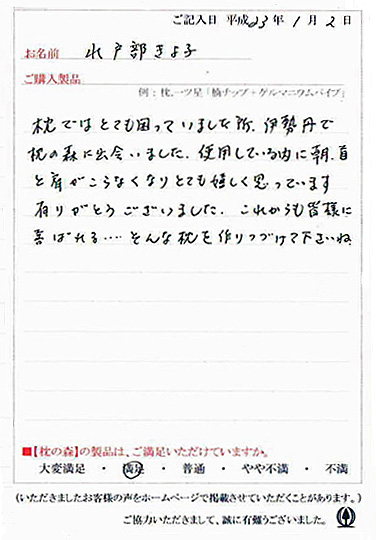 ご記入日 平成23年1月2日
お名前 水戸部きよ子
ご購入製品
例：枕…一ツ星「檜チップ＋ゲルマニウムパイプ」
枕ではとても困っていました所、伊勢丹で
枕の森に出会いました。使用している内に朝、首
と肩がこらなくなりとても嬉しく思っています
有りがとうございました。これからも皆様に
喜ばれる‥‥そんな枕を作りつづけて下さいね
■【枕の森】の製品は、ご満足いただけていますか。
大変満足 ・ 満足 ・ 普通 ・ やや不満 ・ 不満
(いただきましたお客様の声をホームページで掲載させていただくことがあります。)
ご協力いただきまして、誠に有難うございました。